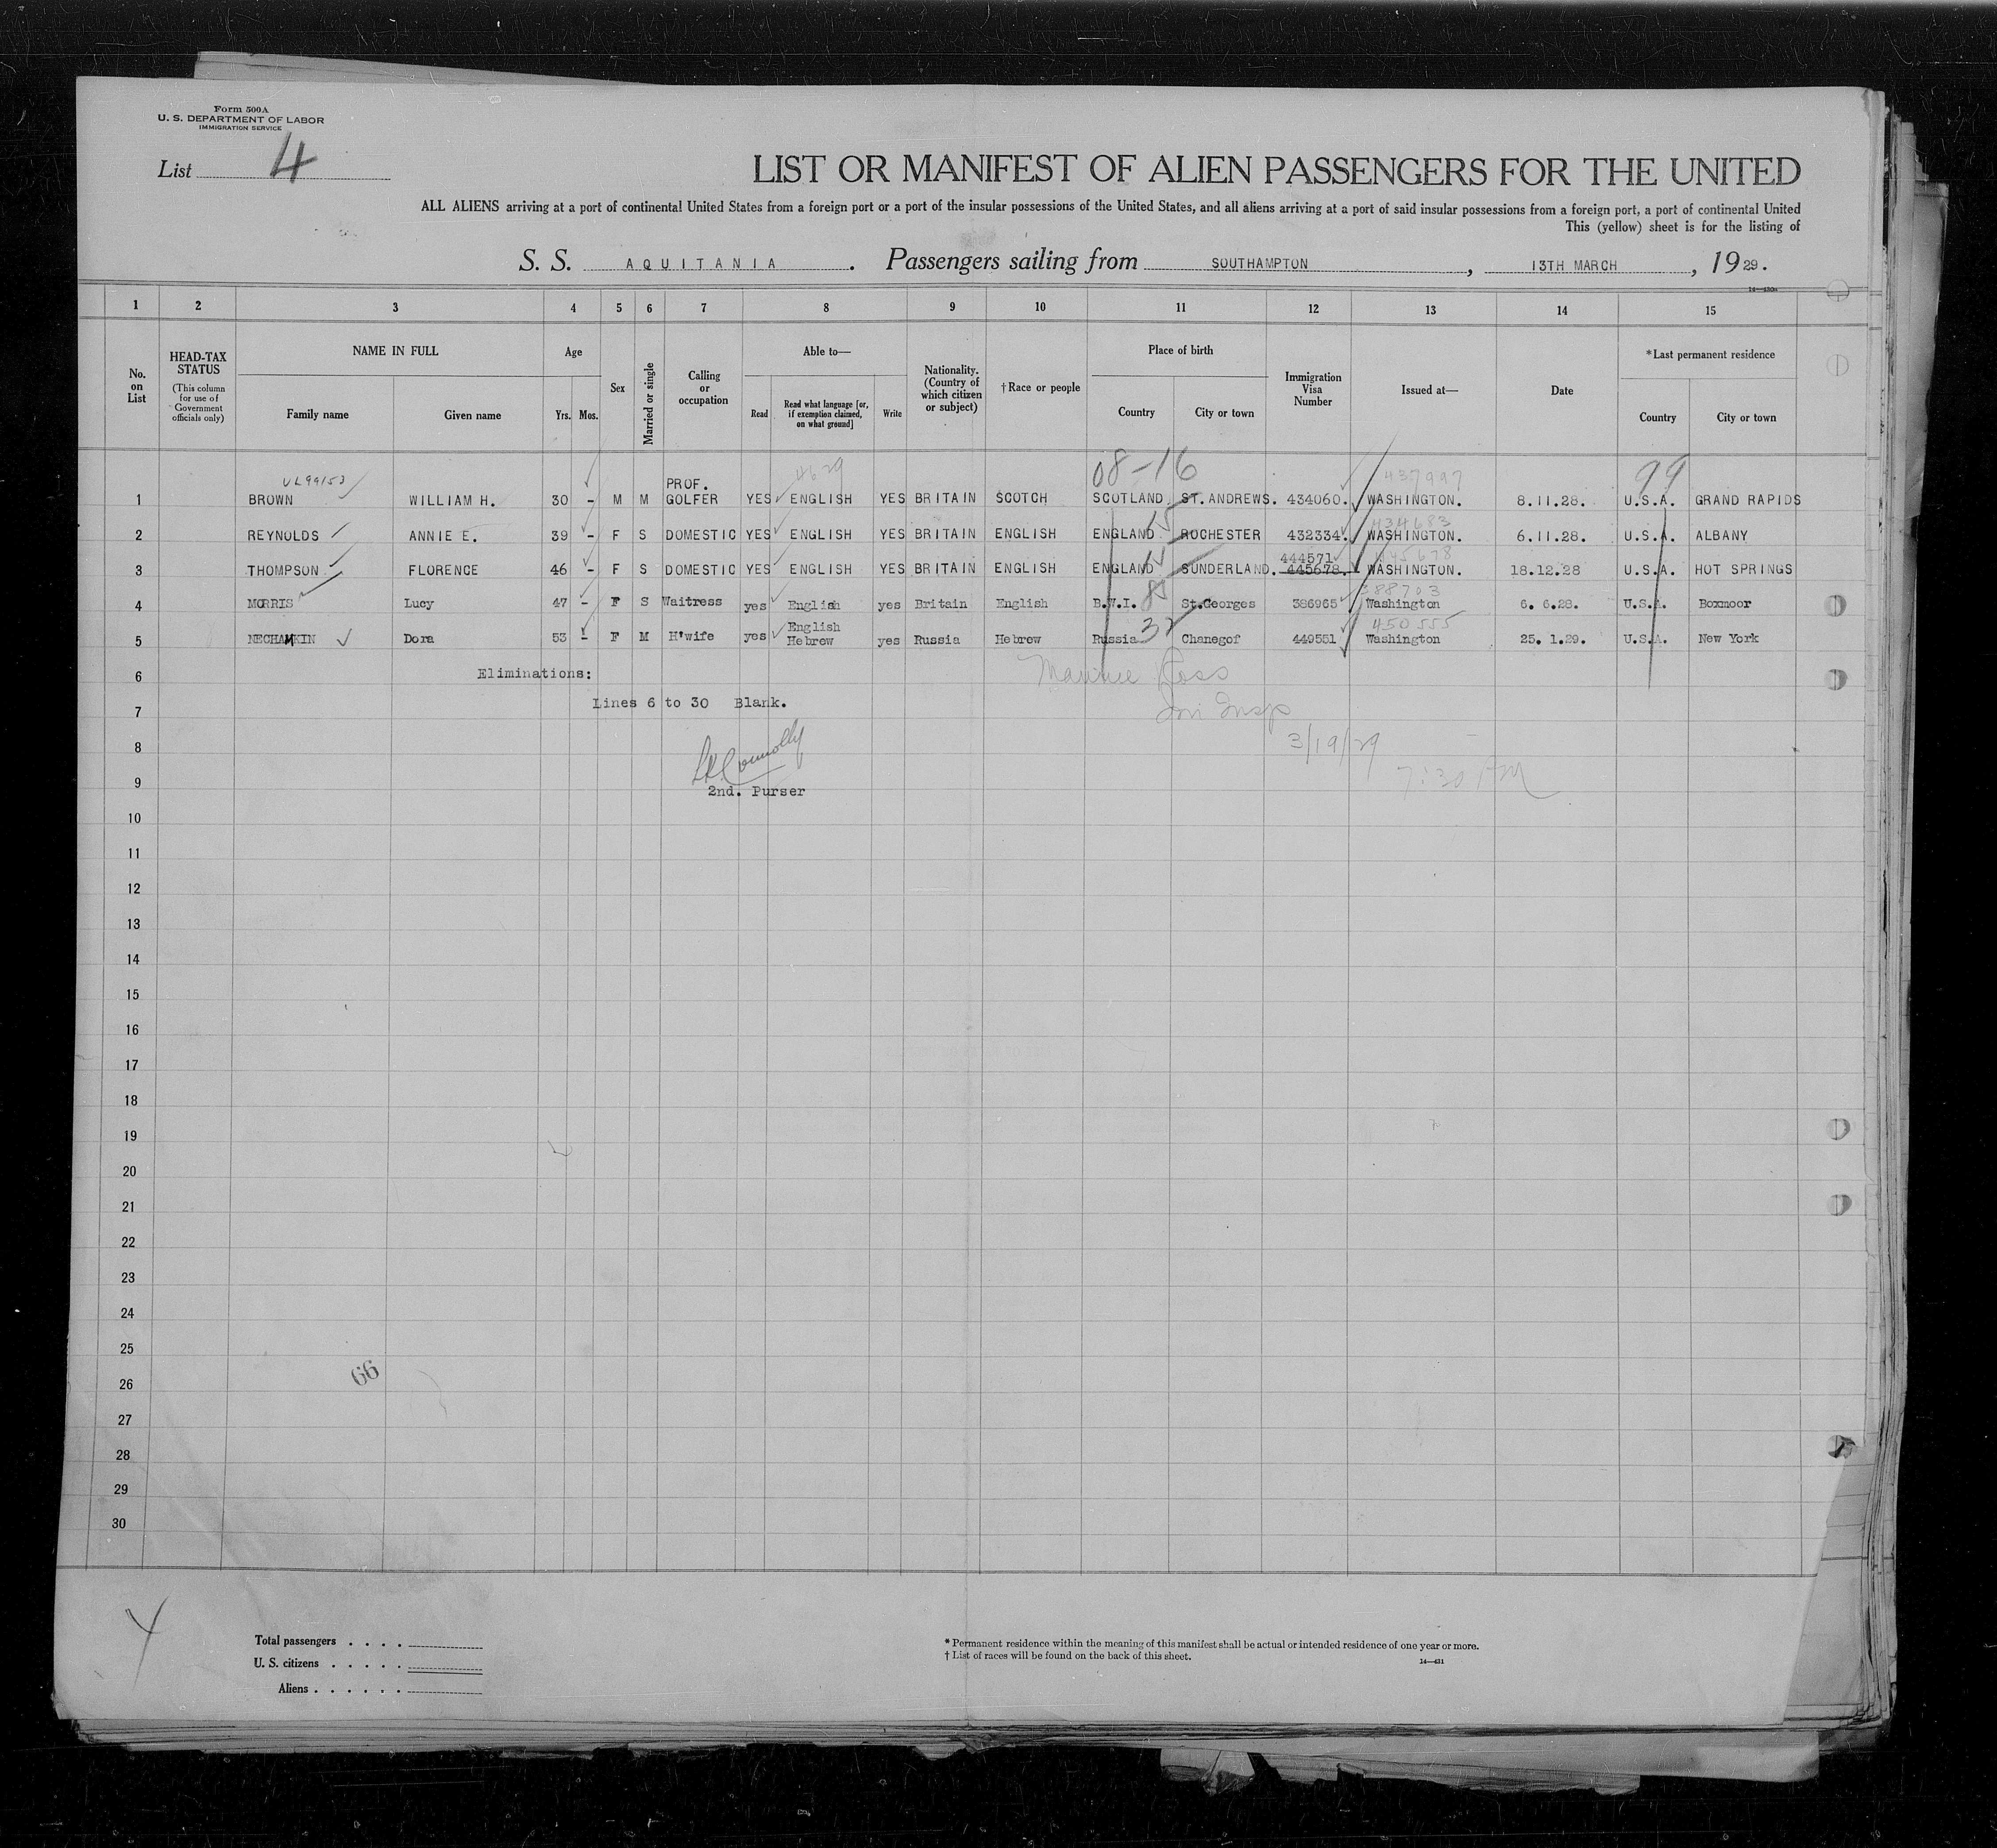 Form 500A
U. S. DEPARTMENT OF LABOR
IMMIGRATION SERVICE
List 4
LIST OR MANIFEST OF ALIEN PASSENGERS FOR THE UNITED
ALL ALIENS arriving at a port of continental United States from a foreign port or a port of the insular possessions of the United States, and all aliens arriving at a port of said insular possessions from a foreign port, a port of continental United
This (yellow) sheet is for the listing of
S. S. AQUITANIA. Passengers sailing from SOUTHAMPTON, 13TH MARCH, 1929.
1 2 3 4 5 6 7 8 9 10 11 12 13 14 15
No. on List
HEAD-TAX STATUS (This column for use of Government officials only)
NAME IN FULL
Family name Given name
Age
Yrs. Mos.
Sex
Married or single
Calling or occupation
Able to—
Read Read what language [or, if exemption claimed, on what ground] Write
Nationality. (Country of which citizen or subject)
† Race or people
Place of birth
Country City or town
Immigration Visa Number
Issued at—
Date
*Last permanent residence
Country City or town
UL99153 4629 08-16 437997 99
1 BROWN WILLIAM H. 30 - M M PROF. GOLFER YES ENGLISH YES BRITAIN SCOTCH SCOTLAND. ST. ANDREWS. 434060. WASHINGTON. 8.11.28. U.S.A. GRAND RAPIDS
434683
2 REYNOLDS ANNIE E. 39 - F S DOMESTIC YES ENGLISH YES BRITAIN ENGLISH ENGLAND 15 ROCHESTER 432334. WASHINGTON. 6.11.28. U.S.A. ALBANY
444571 445678
3 THOMPSON FLORENCE 46 - F S DOMESTIC YES ENGLISH YES BRITAIN ENGLISH ENGLAND SUNDERLAND. 445678. WASHINGTON. 18.12.28 U.S.A. HOT SPRINGS
388703
4 MORRIS Lucy 47 - F S Waitress yes English yes Britain English B.W.I. St.Georges 386965 Washington 6. 6.28. U.S.A. Boxmoor
450555
5 NECHAMKIN Dora 53 - F M H'wife yes English Hebrew yes Russia Hebrew Russia 32 Chanegof 449551 Washington 25. 1.29. U.S.A. New York
6 Eliminations: Maurice Ross
7 Lines 6 to 30 Blank. Imi Insp
8 3/19/29
9 Connolly 7:30 AM
2nd. Purser
10
11
12
13
14
15
16
17
18
19
20
21
22
23
24
25
26 66
27
28
29
30
Total passengers
U. S. citizens
Aliens
* Permanent residence within the meaning of this manifest shall be actual or intended residence of one year or more.
† List of races will be found on the back of this sheet.
14—431